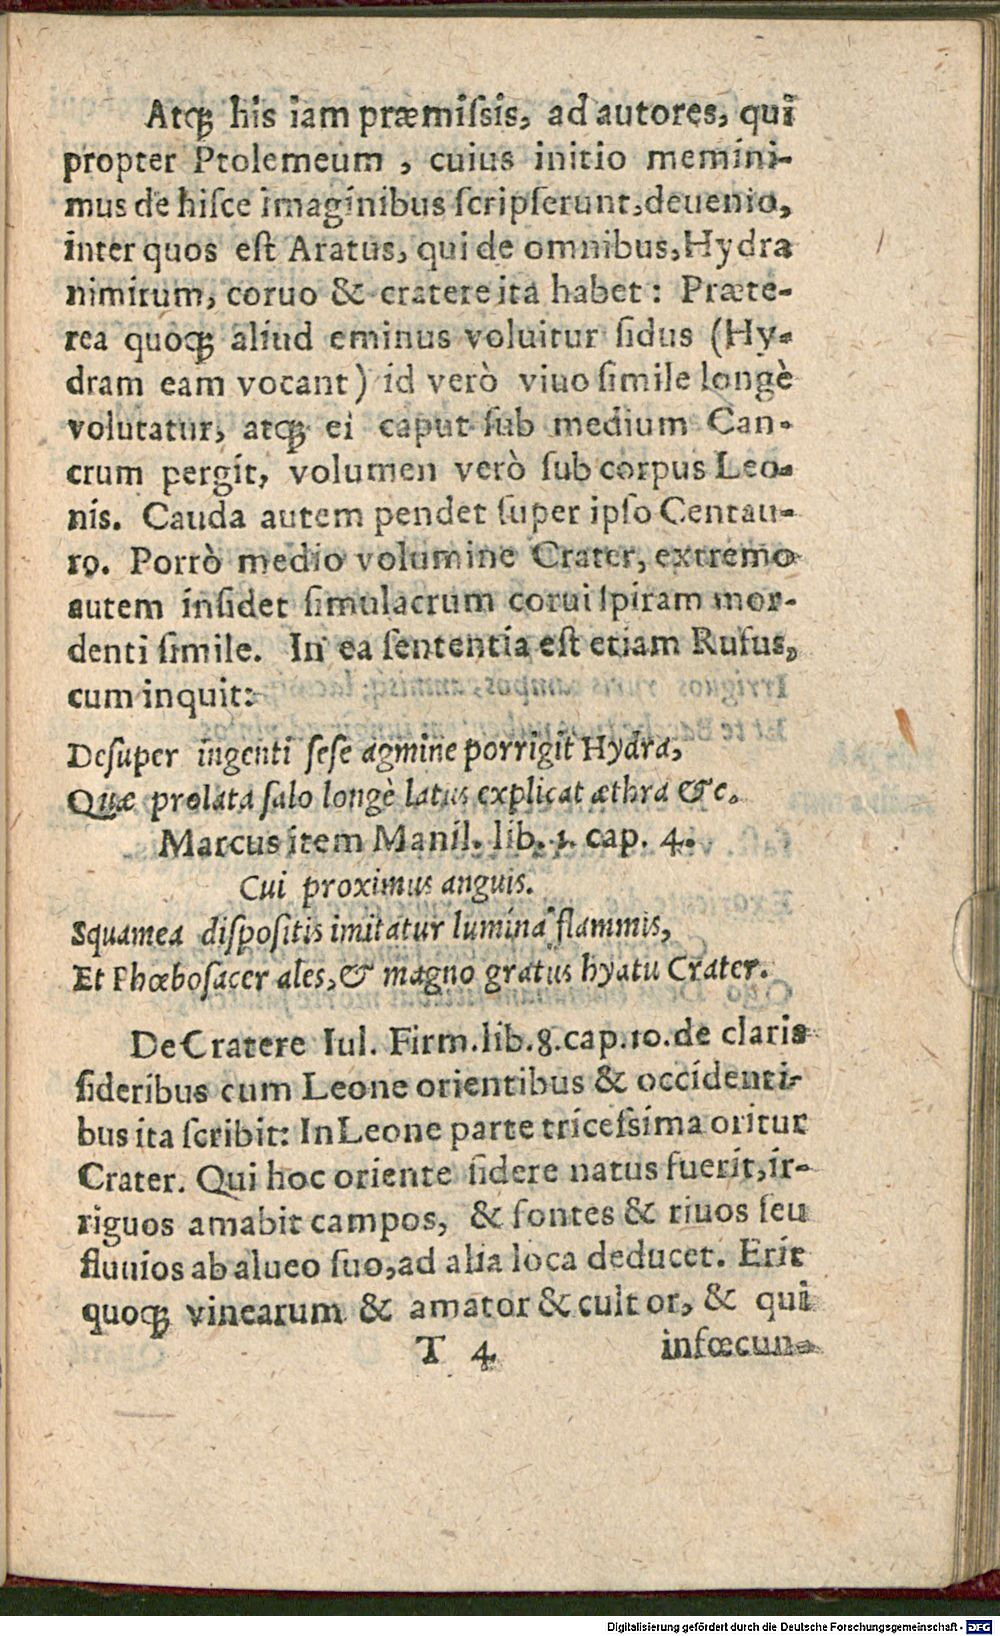 Atq́; his iam præmiſsis, ad autores, qui
propter Ptolemeum , cuius initio memini-
mus de hiſce imaginibus ſcripſerunt, deuenio,
inter quos eſt Aratus, qui de omnibus, Hydra
nimirum, coruo & cratere ita habet: Præte-
rea quoq́; aliud eminus voluitur ſidus (Hy-
dram eam vocant) id verò viuo ſimile longè
volutatur, atq́; ei caput ſub medium Can-
crum pergit, volumen verò ſub corpus Leo-
nis. Cauda autem pendet ſuper ipſo Centau-
ro. Porrò medio volumine Crater, extremo
autem inſidet ſimulacrum corui ſpiram mor-
denti ſimile. In ea ſententia eſt etiam Rufus,
cum inquit:
Deſuper ingenti ſeſe agmine porrigit Hydra,
Quæ prolata ſalo longè latus explicat æthra &c.
Marcus item Manil. lib. 1. cap. 4.
Cui proximus anguis.
Squamea diſpoſitis imitatur lumina flammis,
Et Phœbo ſacer ales, & magno gratus hyatu Crater.
De Cratere Iul. Firm. lib. 8. cap. 10. de claris
ſideribus cum Leone orientibus & occidenti-
bus ita ſcribit: In Leone parte triceſsima oritur
Crater. Qui hoc oriente ſidere natus fuerit, ir-
riguos amabit campos, & fontes & riuos ſeu
fluuios ab alueo ſuo, ad alia loca deducet. Erit
quoq́; vinearum & amator & cultor, & qui
T 4 infœcun-
Digitalisierung gefördert durch die Deutsche Forschungsgemeinschaft - DFG